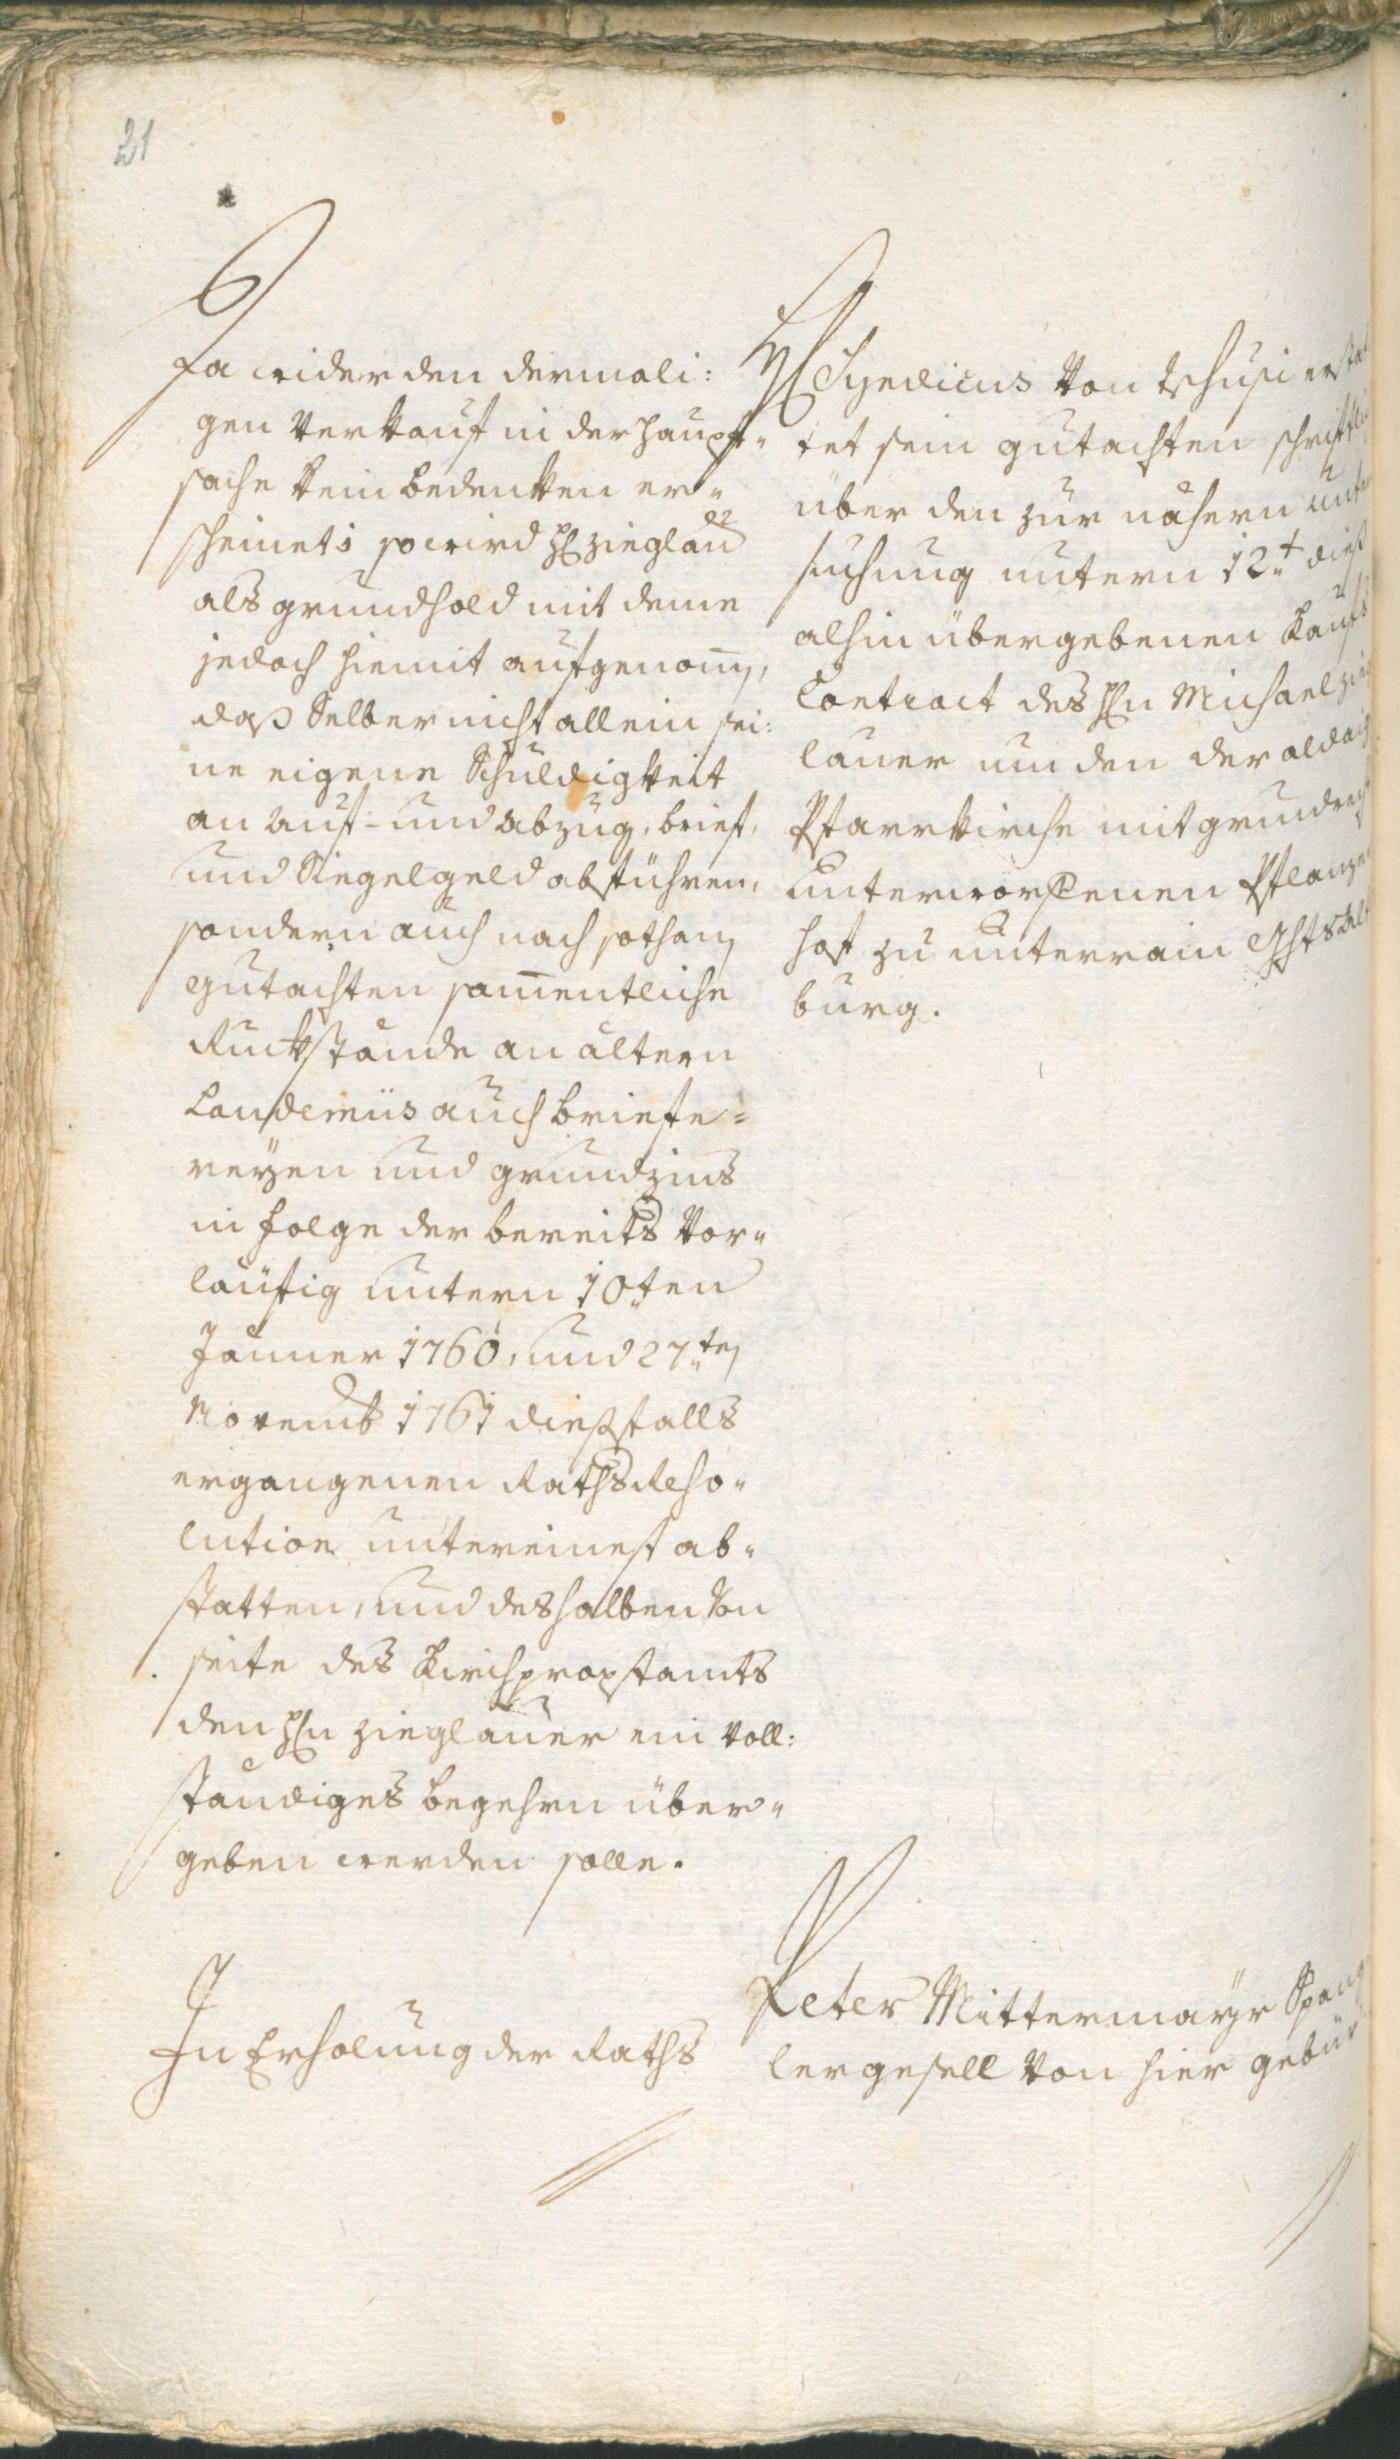 21
Da wider den dermali:
gen Verkauf in der Haupt„
sache kein bedenken er„
scheinet; so wird H: Zieglau̅er
als grundhold mit deme
jedoch hiemit aufgenom̅en,
daß Selber nicht allein sei:
ne eigene Schuldigkeit
an auf- und abzug, brief,
und Siegelgeld abführen,
sondern auch nach sothanen
gutachten sam̅entliche
Ruckstände an ältern
Laudemiis auch briefe=
reyen und grundzins
in folge der bereits Vor„
läufig untern 10ten
Jänner 1760, und 27ten
Novemb 1761 diesfalls
ergangenen Raths Reso„
lution untereinest ab„
statten, und deshalben Von
seite des Kirchpropstamts
den H:n Zieglauer ein Voll:
ständiges begehrn über„
geben werden solle.
H: Syndicus Von Tschusi erstat
tet sein gutachten schriftli
über den zur nähern unter
suchung untern 12t dieß
alhin übergebenen Kaufs
Contract des H:n Michael Zieg
lauer um den der aldaig
Pfarrkirche mit grundrecht
unterworfenen Pflanzen
hof zu unterrain Ghts Alt
burg.
In Erholung der Raths
Peter Mittermayr Spang
lergesell Von hier gebür